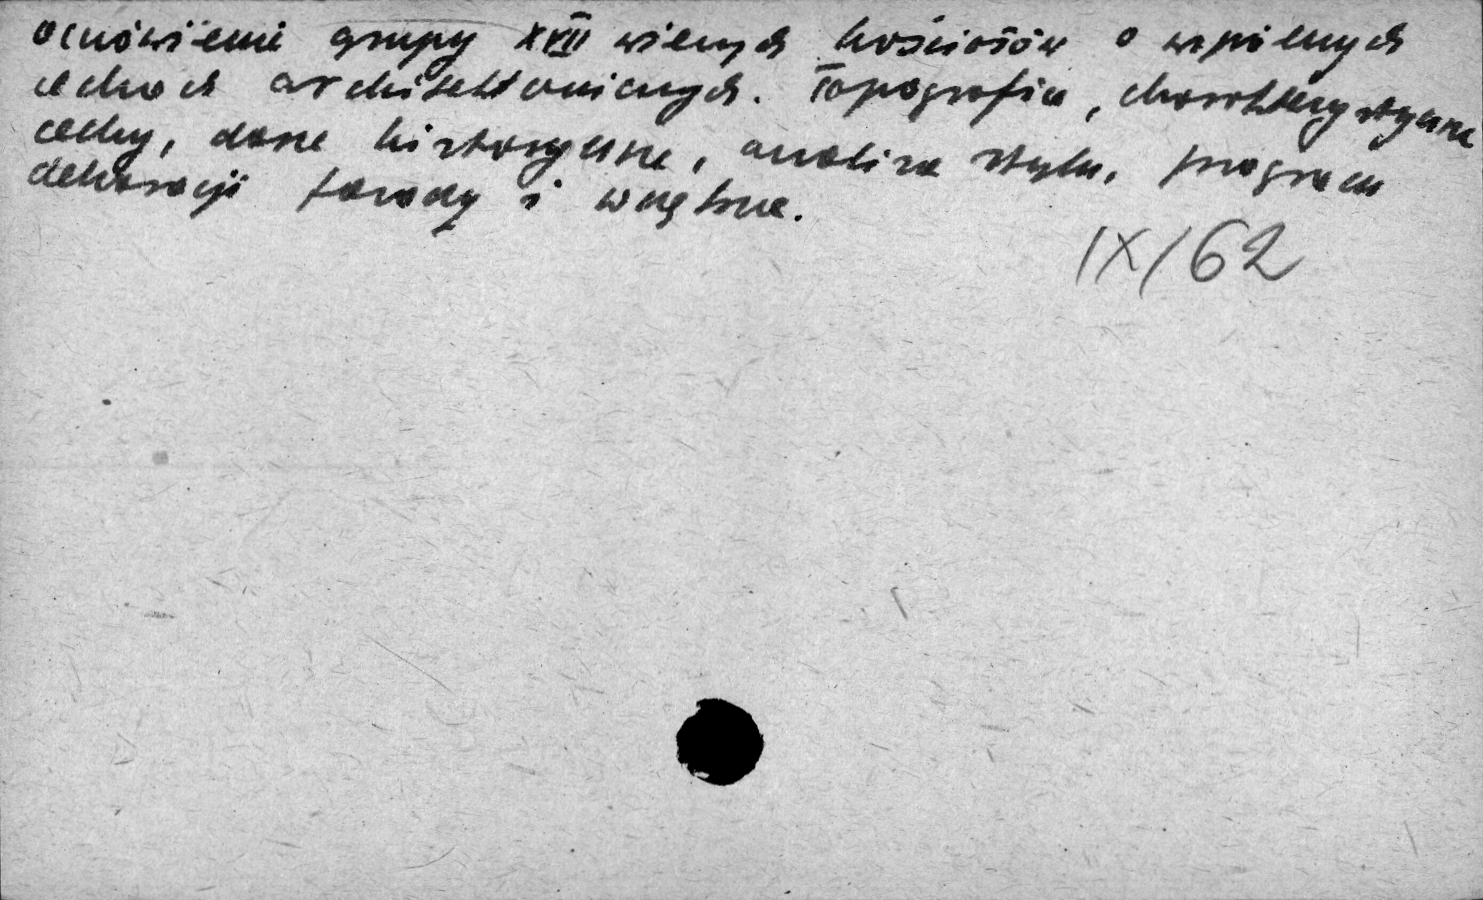 omówienie grupy XVII wiecznych kościołów o wspólnych
cechach architektonicznych. Topografia, charakterystyczne
cechy, dane historyczne, analiza stylu, program
dekoracji fasady i wnętrza.
IX/62